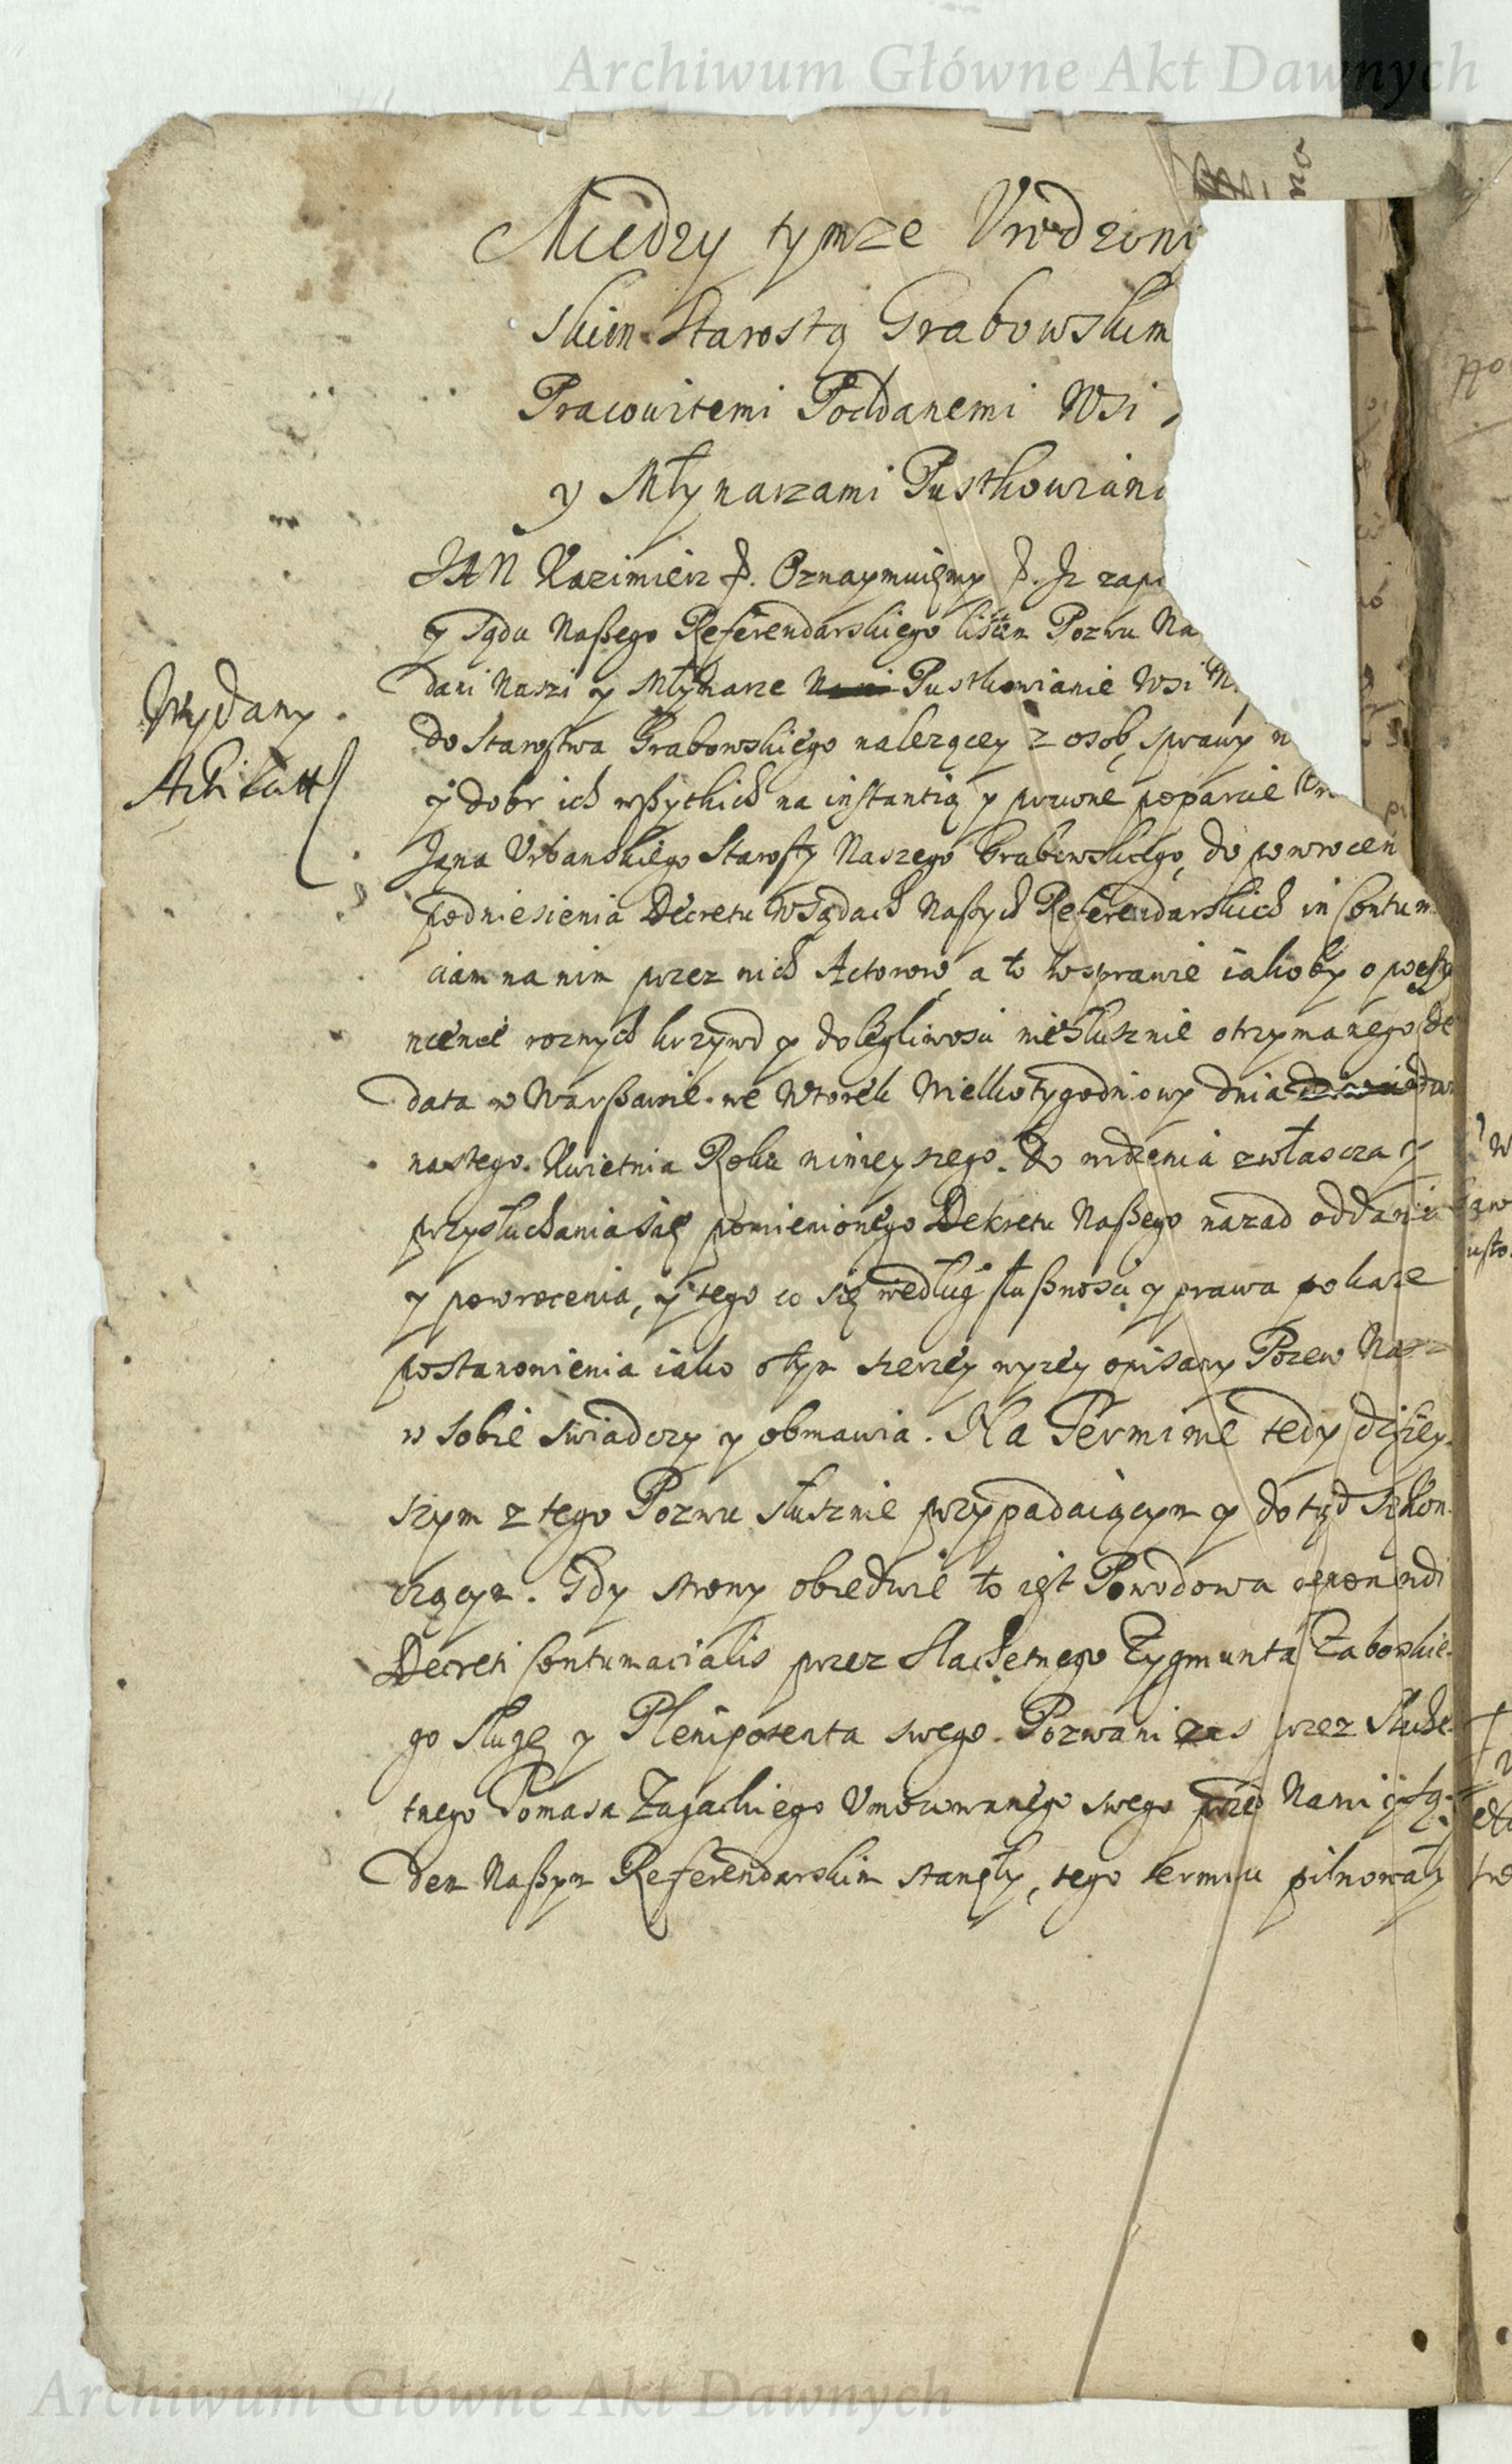 Archiwum Główne Akt Dawnych
no
Miedzy tymze Vrodzoni
skiem Starostą Grabowskim
Pracowitemi Poddanemi Wsi
y Młynarzami Pustkowiana
JAN Kazimierz P. Oznaymuięmy P. Jz zapo
y Sądu Naßego Referendarskiego listem Pozwu Na
dani Naszi y Młynarze Pustkowianie Wsi
do Starostwa Grabowskiego nalezącey z osób, sprawy
y dobr ich wßytkich na instantią y prawne poparcie Vr
Jana Vrbanskiego Starosty Naszego Grabowskiego, do powrocen
podniesienia Decretu w Sądach Naßych Referendarskich in Contum
ciam na nim przez nich Actorow, a to w sprawie iakoby o
nienie roznych krzywd y dolegliwosci niesłusznie otrzymanego de
data w Warßawie we Wtorek Wielkotygodniowy dnia dwu
nastego Kwietnia Roku ninieyszego. Do widzenia zwłascza y
przysłuchania się pomienionego Dekretu Naßego nazad oddania
y powrocenia, y tego co się według słußnosci y prawa pokaze
postanowienia iako o tym szerzey wyzey opisany Pozew Nasz
w sobie swiadczy y obmawia. Na Terminie tedy dzisiey
szym z tego Pozwu słusznie przypadaiącym y dotąd szkon
czącym. Gdy strony obiedwie to iest Powodowa reponendi
Decreti Contumacialis przez Slachetnego Zygmunta Zaborskie
go Sługę y Plenipotenta swego. Pozwani zas przez Slache
tnego Tomasa Zagackiego Vmocowanego swego przed Nami y Są
dem Naßym Referendarskim stanęły, tego terminu pilnowały
Wydany
Archiwum Główne Akt Dawnych